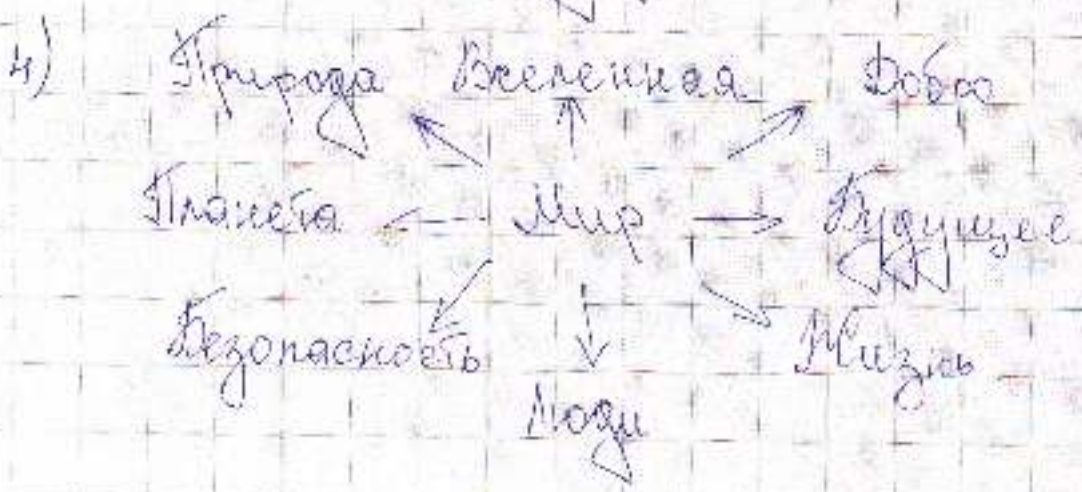 4) Природа Вселенная Добро
Планета Мир Будущее
Безопасность Жизнь
Люди